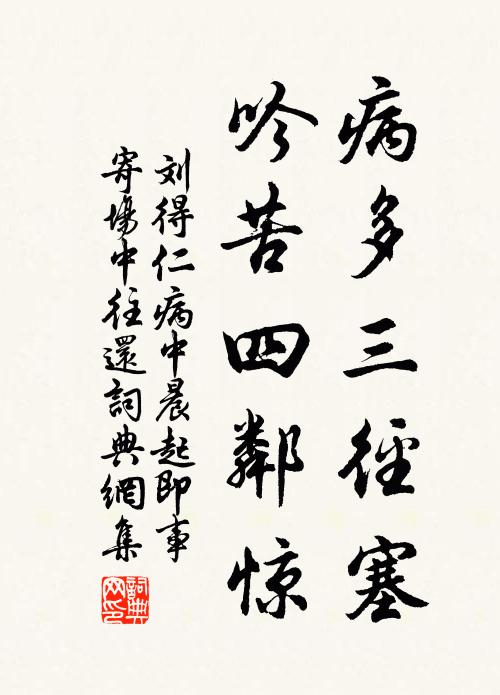 病多三徑塞
吟苦四鄰惊
刘得仁病中晨起即事
寄場中往還詞典網集
詞典網印